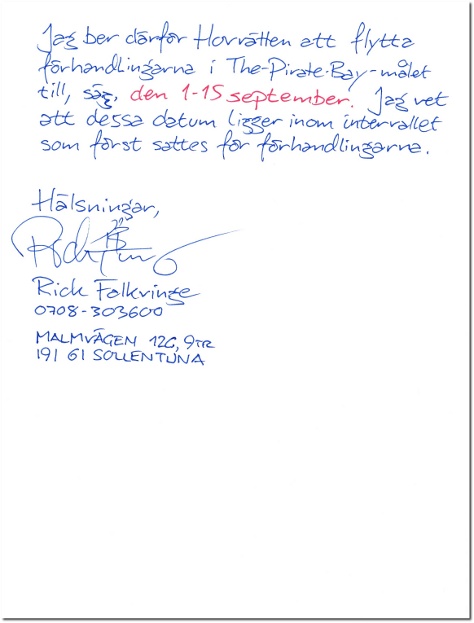 Jag ber därför Hovrätten att flytta
förhandlingarna i The-Pirate-Bay-målet
till, säg, den 1-15 september. Jag vet
att dessa datum ligger inom intervallet
som först sattes för förhandlingarna.
Hälsningar,
Rick Falkvinge
0708-303600
MALMVÄGEN 12C, 9TR
191 61 SOLLENTUNA